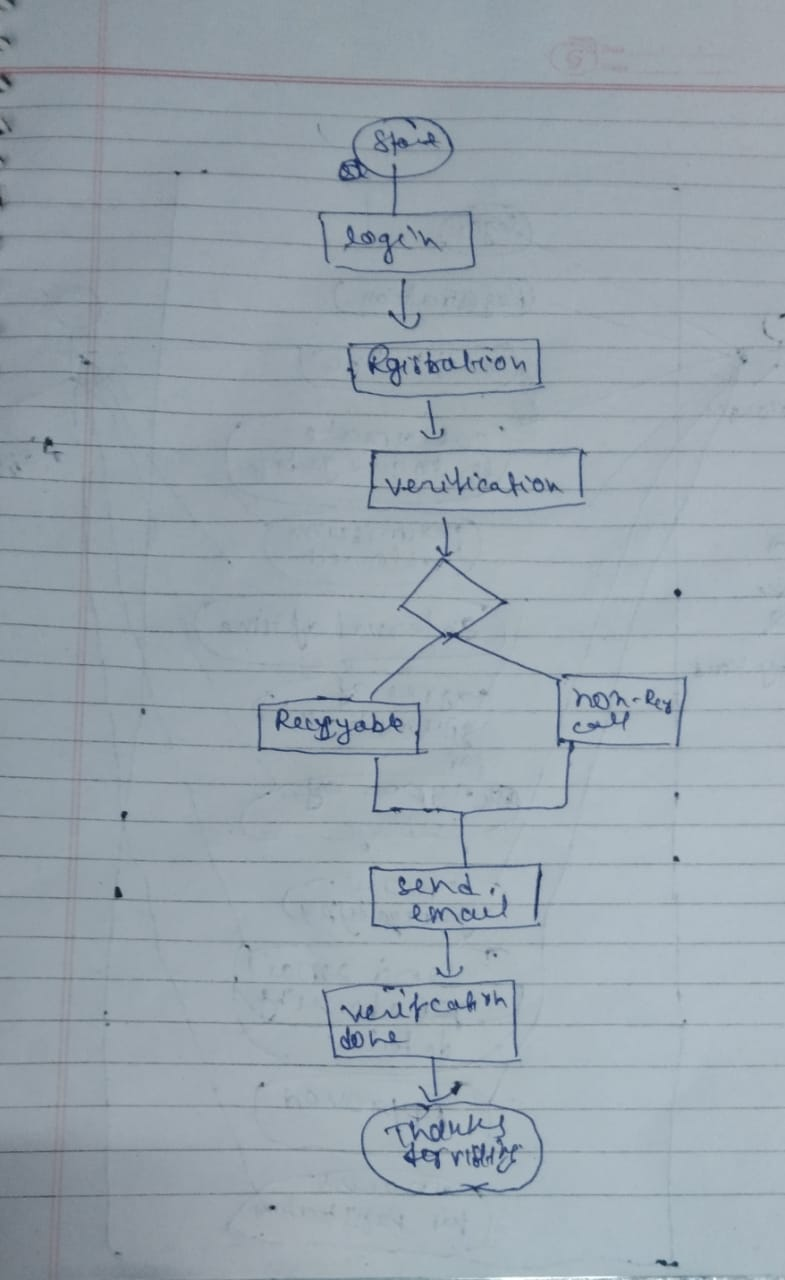 Start
login
Rgistration
verification
Recycyable
non-Recy
call
send
email
verifcation
done
Thanks
for visiting